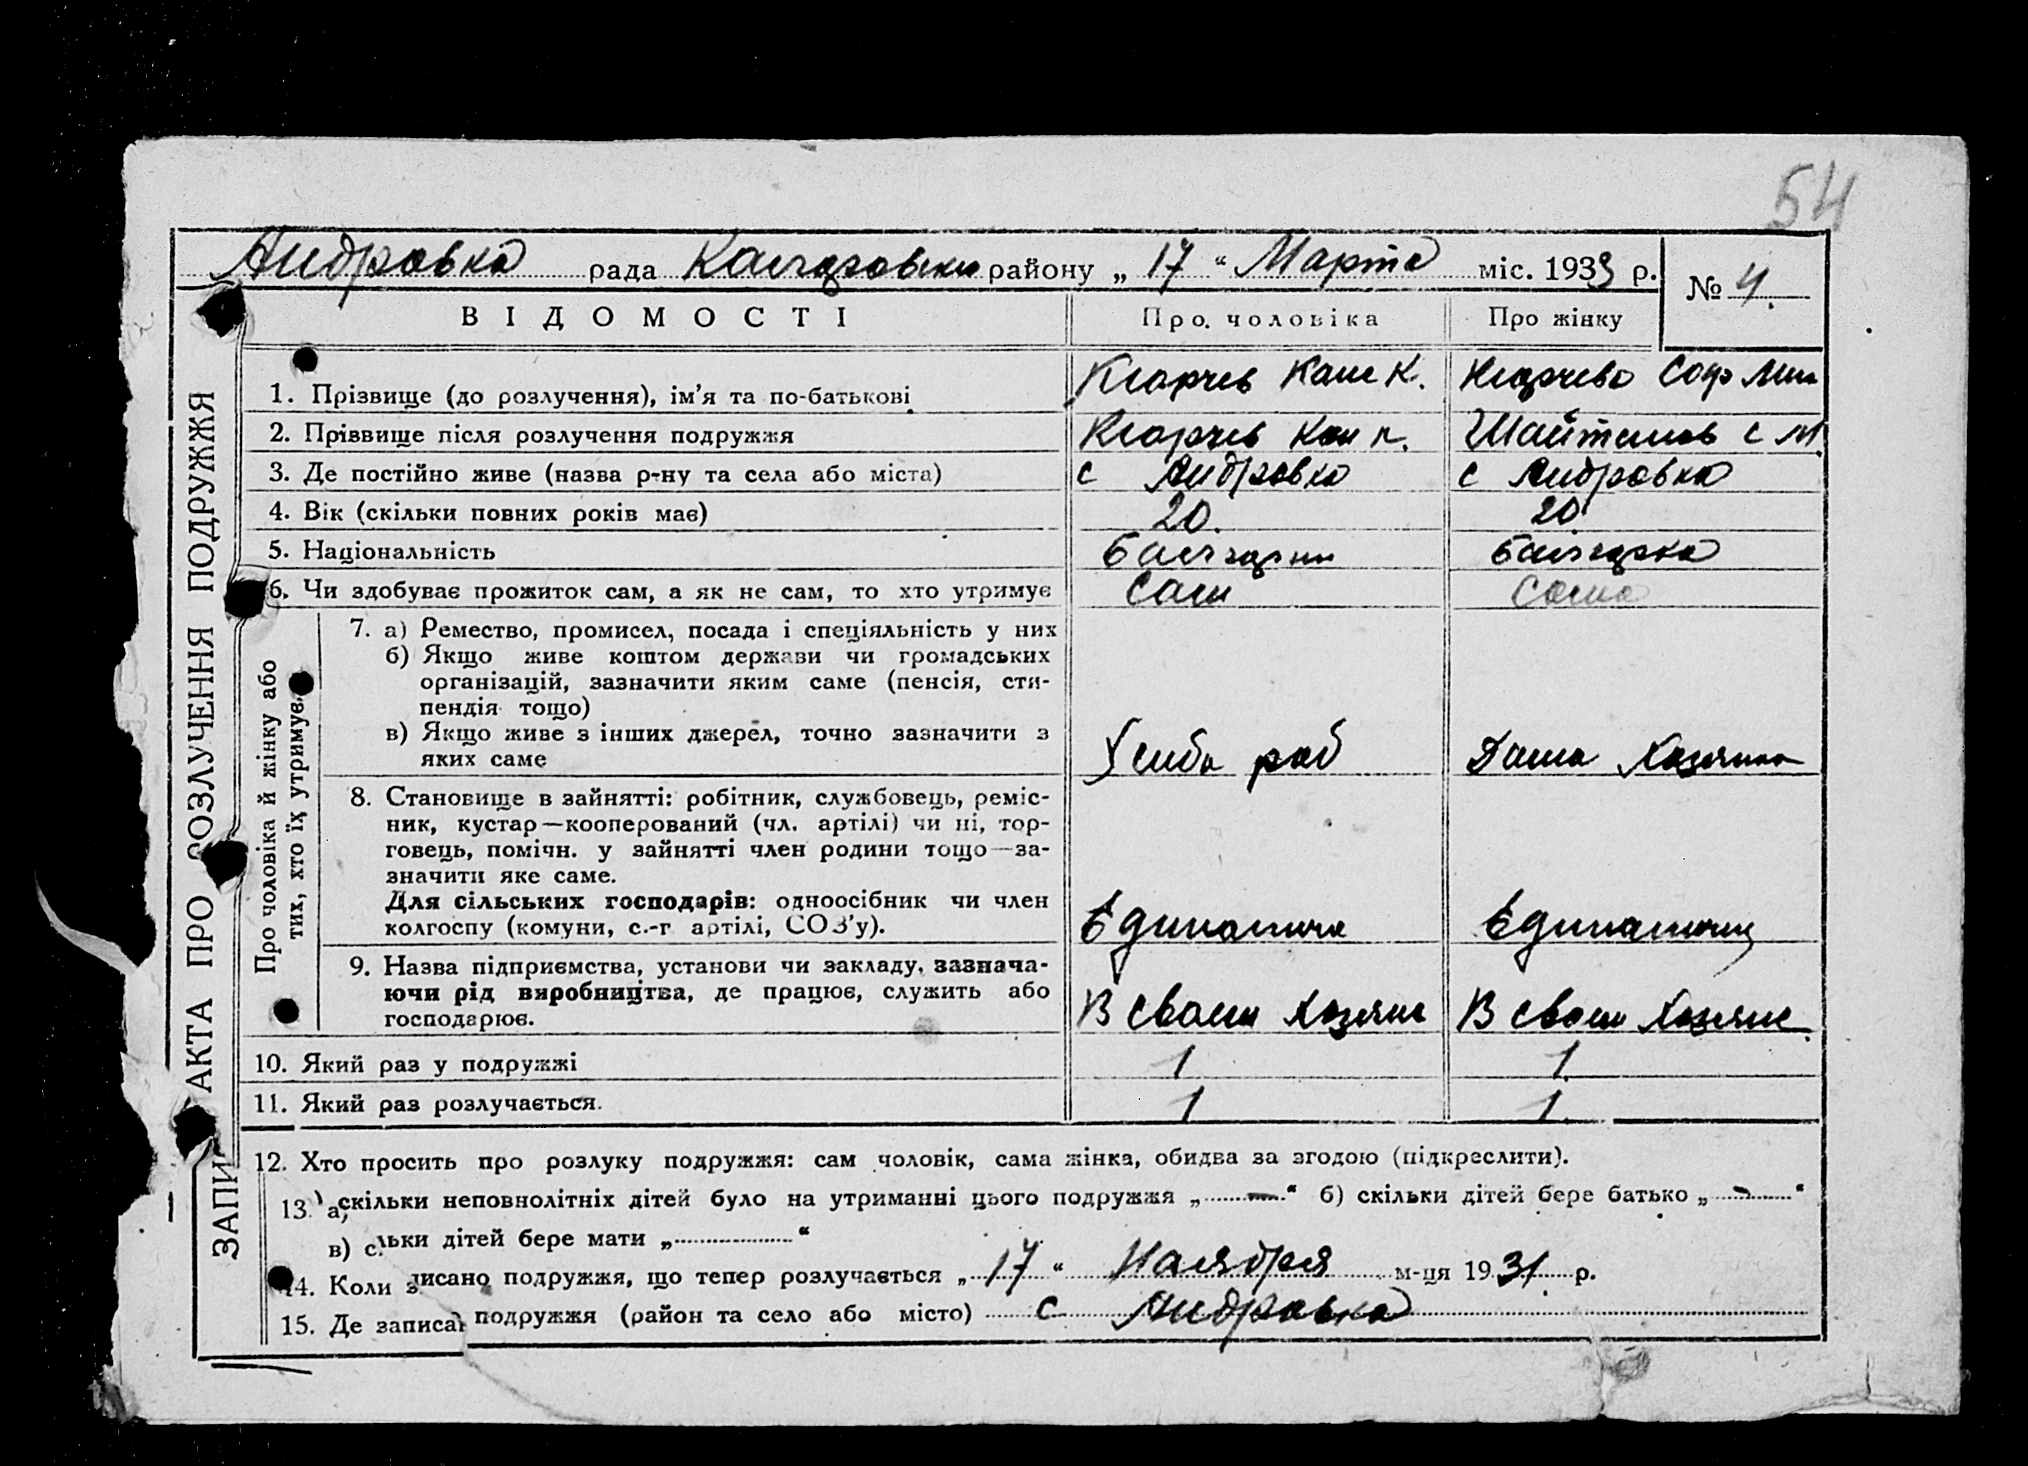 54
Андровка рада района „ 17 “ Марта міс. 1933 р.
№ 4.
ВІДОМОСТІ Про чоловіка Про жінку
ЗАПИС АКТА ПРО РОЗЛУЧЕННЯ ПОДРУЖЖЯ
1. Прізвище (до розлучення), ім’я та по-батькові
2. Прізвище після розлучення подружжя
3. Де постійно живе (назва р-ну та села або міста) с Андровка с Андровка
4. Вік (скільки повних років має) 20. 20
5. Національність Балгарин Балгарка
6. Чи здобуває прожиток сам, а як не сам, то хто утримує Сам Сама
Про чоловіка й жінку або
тих, хто їх утримує
7. а) Ремество, промисел, посада і спеціяльність у них
б) Якщо живе коштом держави чи громадських
організацій, зазначити яким саме (пенсія, сти-
пендія тощо)
в) Якщо живе з інших джерел, точно зазначити з
яких саме
8. Становище в зайнятті: робітник, службовець, реміс-
ник, кустар—кооперований (чл. артілі) чи ні, тор-
говець, помічн. у зайнятті член родини тощо—за-
значити яке саме.
Для сільських господарів: одноосібник чи член
колгоспу (комуни, с.-г артілі, СОЗ’у).
9. Назва підприємства, установи чи закладу, зазнача-
ючи рід виробництва, де працює, служить або
господарює. В своем В своем
10. Який раз у подружжі 1 1.
11. Який раз розлучається. 1 1.
12. Хто просить про розлуку подружжя: сам чоловік, сама жінка, обидва за згодою (підкреслити).
13. а) скільки неповнолітніх дітей було на утриманні цього подружжя „ — “ б) скільки дітей бере батько „ — “
в) скільки дітей бере мати „ “
14. Коли записано подружжя, що тепер розлучається „ 17 “ Наября м-ця 1931 р.
15. Де записано подружжя (район та село або місто) с Андровка